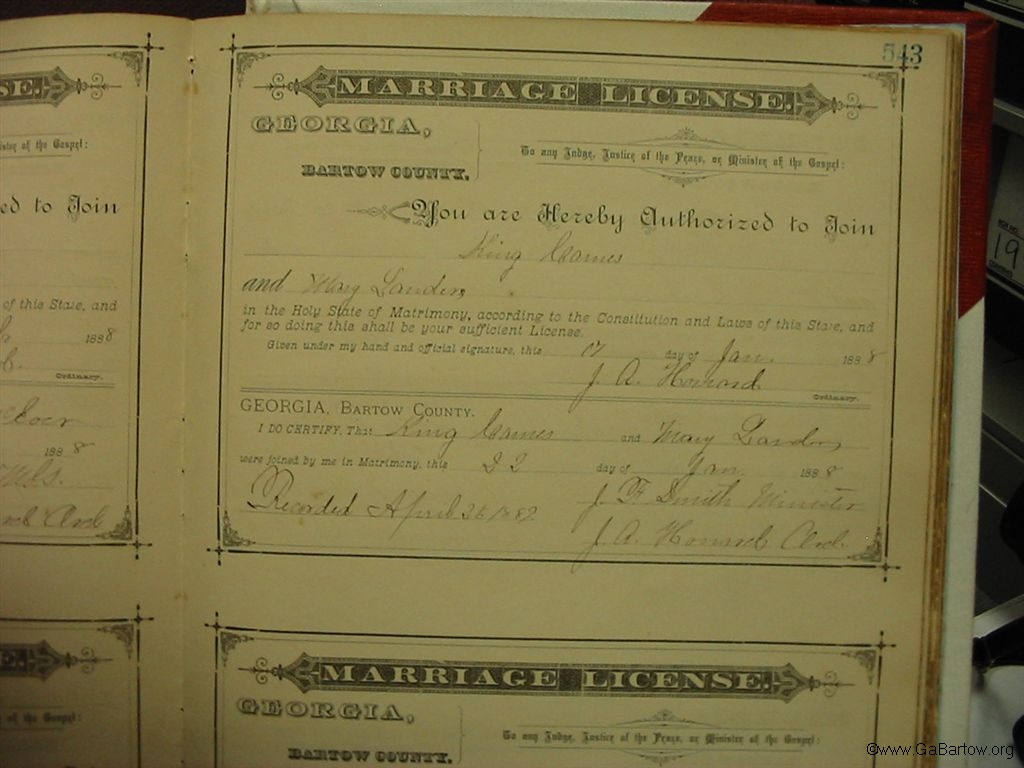 543
MARRIAGE LICENSE.
GEORGIA,
BARTOW COUNTY.
To any Judge, Justice of the Peace, or Minister of the Gospel:
You are Hereby Authorized to Join
King Carnes
and Mary Landers
in the Holy State of Matrimony, according to the Constitution and Laws of this State, and
for so doing this shall be your sufficient License.
Given under my hand and official signature, this 17 day of Jan. 1888
J. A. Howard
Ordinary.
GEORGIA, BARTOW COUNTY.
I DO CERTIFY, That King Carnes and Mary Landers
were joined by me in Matrimony, this 22 day of Jan 1888
J. F. Smith Minister
Recorded April
J. A. Howard Ord.
MARRIAGE LICENSE.
GEORGIA,
BARTOW COUNTY.
To any Judge, Justice of the Peace, or Minister of the Gospel:
SE.
ister of the Gospel:
ed to Join
of this State, and
1888
Ordinary.
1888
Ord
E.
of the Gospel:
19
©www.GaBartow.org